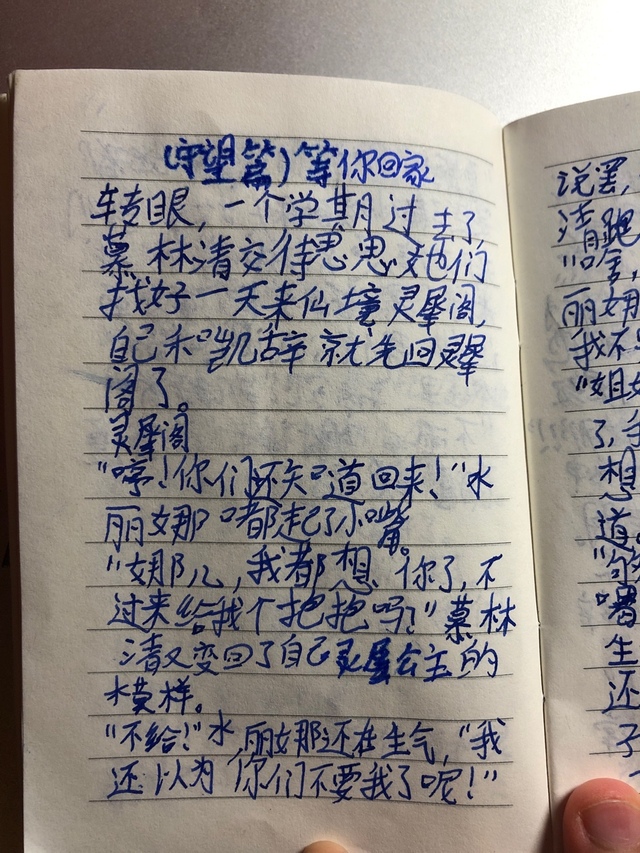 (守望篇)等你回家
转眼,一个学期过去了,
慕林清交待思思她们
找好一天来仙境灵犀阁,
自己和凯辞就先回灵犀
阁了。
灵犀阁
“哼!你们还知道回来!”水
丽娜嘟起了小嘴。
“娜儿,我都想你了,不
过来给我个抱抱吗?”慕林
清又变回了自己灵犀公主的
模样。
“不给!”水丽娜还在生气,“我
还以为你们不要我了呢!”
说罢,
清跑
丽娜
我不
“姐
了,
想
道。
嘟
生
还
子